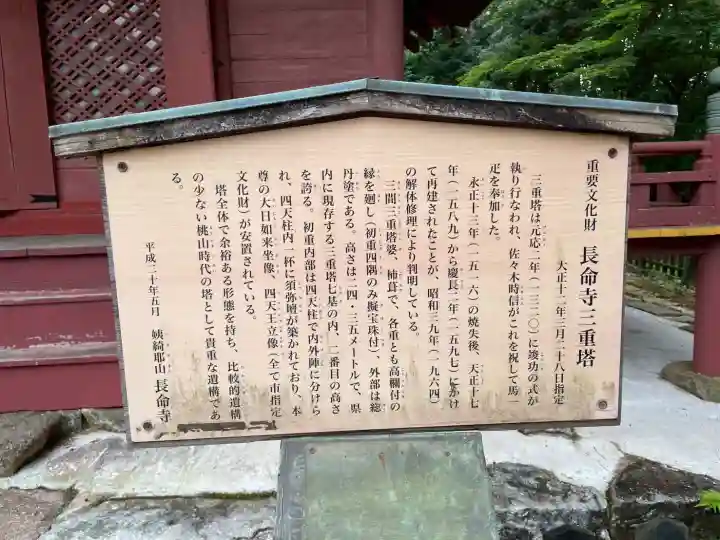 重要文化財　長命寺三重塔
大正十二年三月二十八日指定
三重塔は元応二年（一三二〇）に竣功の式が
執り行なわれ、佐々木時信がこれを祝して馬一
疋を奉加した。
永正十三年（一五一六）の焼失後、天正十七
年（一五八九）から慶長二年（一五九七）にかけ
て再建されたことが、昭和三九年（一九六四）
の解体修理により判明している。
三間三重塔婆、杮葺で、各重とも高欄付の
縁を廻し（初重四隅のみ擬宝珠付）、外部は総
丹塗である。高さは二四・三五メートルで、県
内に現存する三重塔七基の内、二番目の高さ
を誇る。初重内部は四天柱で内外陣に分けら
れ、四天柱内一杯に須弥壇が築かれており、本
尊の大日如来坐像、四天王立像（全て市指定
文化財）が安置されている。
塔全体で余裕ある形態を持ち、比較的遺構
の少ない桃山時代の塔として貴重な遺構であ
る。
平成二十年五月　姨綺耶山　長命寺